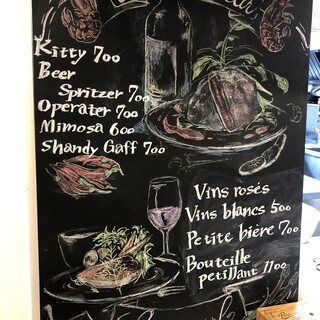 Kitty 700
Beer
Spritzer 700
Operater 700
Mimosa 600
Shandy Gaff 700
Vins rosés
Vins blancs 500
Petite bière 700
Bouteille
petillant 1100